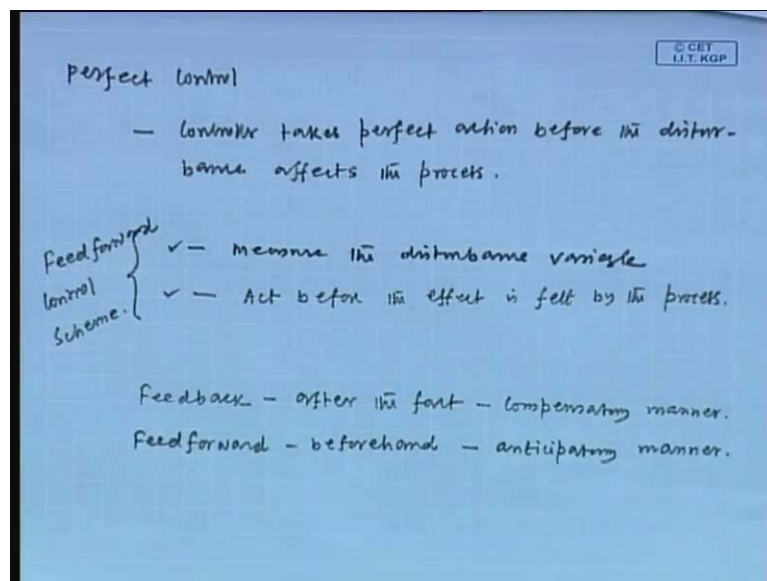 © CET
I.I.T. KGP
Perfect Control
– Controller takes perfect action before the distur-
bance affects the process.
Feedforward
Control
Scheme.
✓ – Measure the disturbance variable
✓ – Act before the effect is felt by the process.
Feedback – after the fact – compensatory manner.
Feedforward – beforehand – anticipatory manner.